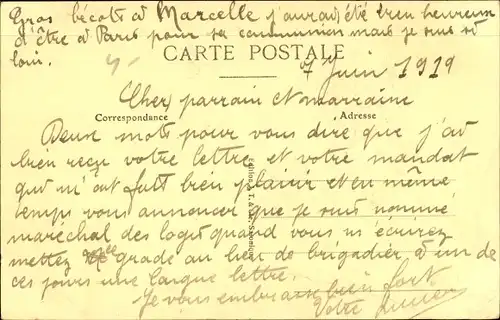 Gros bécots à Marcelle j'aurais été bien heureuse
d'être à Paris pour sa communion mais je suis si
loin.
CARTE POSTALE
7 Juin 1919
Chers parrain et marraine
Correspondance
Adresse
Deux mots pour vous dire que j'ai
bien reçu votre lettre et votre mandat
qui m'ont fait bien plaisir et en même
temps vous annoncer que je suis nommé
maréchal des logis quand vous m'écrirez
mettez ce grade au lieu de brigadier, d'un de
ces jours une longue lettre.
Je vous embrasse bien fort
Votre